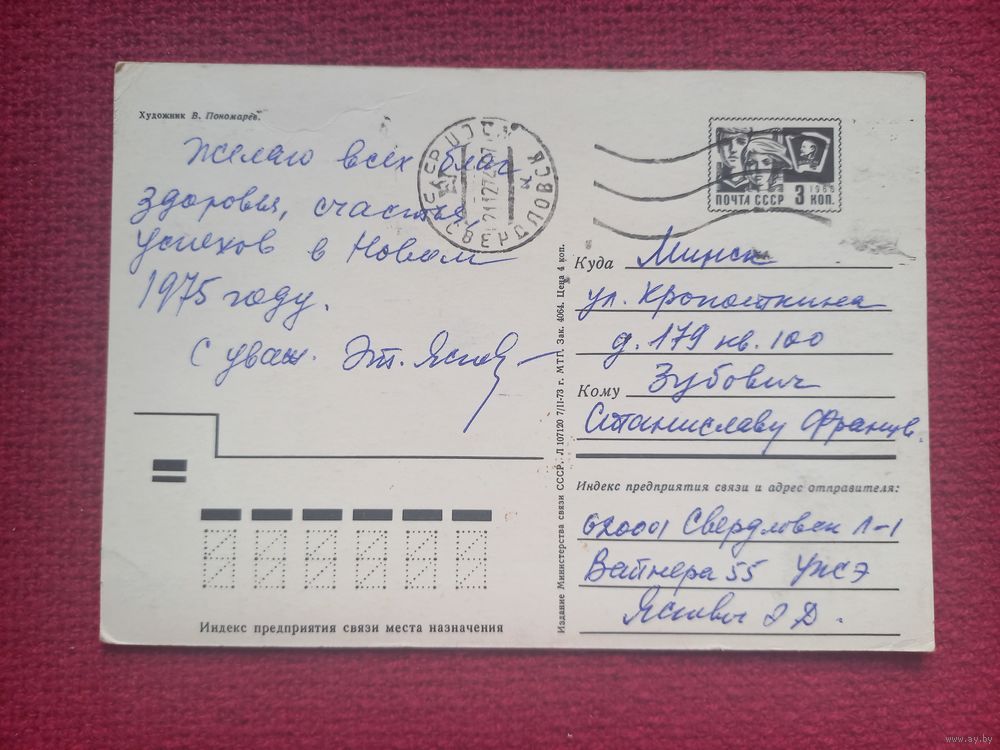 Художник В. Пономарев.
Желаю всех благ
здоровья, счастья,
успехов в Новом
1975 году.
С уваж. Эт.
СССР
СВЕРДЛОВСК
ПОЧТА СССР 3 КОП.
1966
Куда Минск
ул. Кропоткина
д. 179 кв. 100
Кому Зубович
Станиславу Францев.
Индекс предприятия связи и адрес отправителя:
620001 Свердловск Л-1
Вайнера 55 УЖСЭ
Э Д.
Индекс предприятия связи места назначения
Издание Министерства связи СССР. Л 107120 7/II-73 г. МТГ. Зак. 4064. Цена 4 коп.
www.ay.by